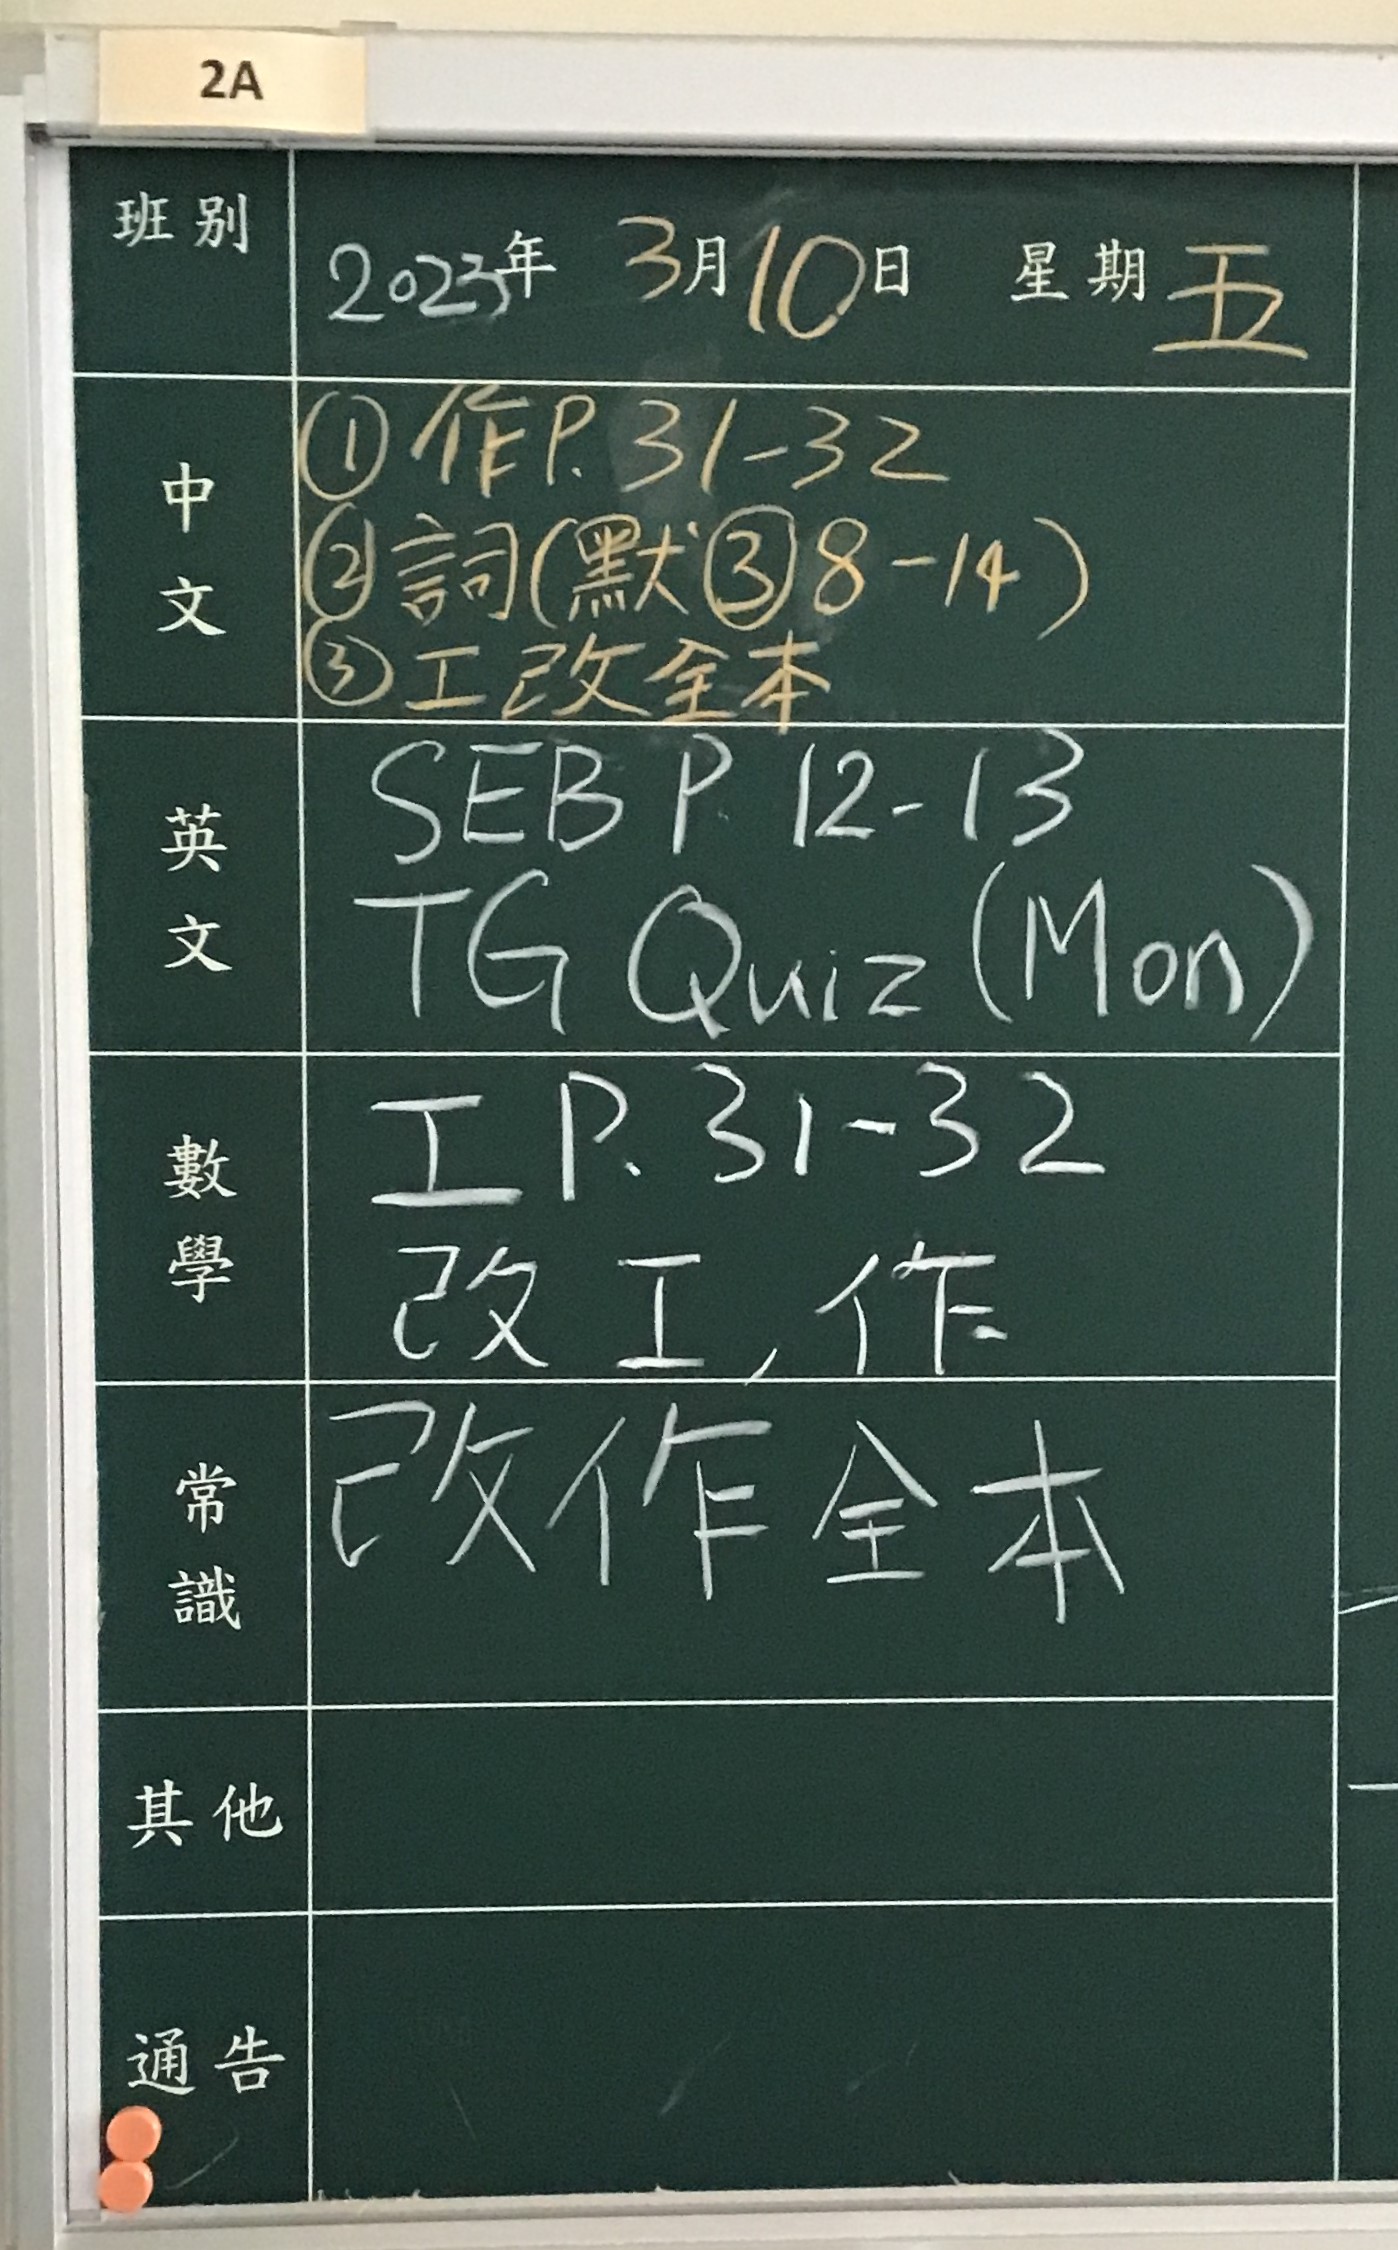 2A
班別
2023年 3月10日 星期五
中文
①作P.31-32
②詞(默③8-14)
③工改全本
英文
SEB P.12-13
TG Quiz (Mon)
數學
工P.31-32
改工,作
常識
改作全本
其他
通告